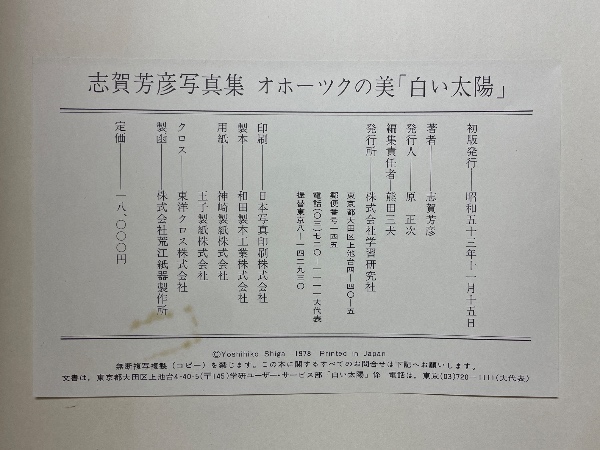 志賀芳彦写真集 オホーツクの美「白い太陽」
初版発行──昭和五十三年十一月十五日
著者──志賀芳彦
発行人──原 正次
編集責任者──熊田三夫
発行所──株式会社学習研究社
東京都大田区上池台四-四〇-五
郵便番号一四五
電話(〇三)七二〇-一一一一大代表
振替東京八-一四二九三〇
印刷──日本写真印刷株式会社
製本──和田製本工業株式会社
用紙──神崎製紙株式会社
王子製紙株式会社
クロス──東洋クロス株式会社
製函──株式会社荒江紙器製作所
定価──一八、〇〇〇円
©Yoshihiko Shiga 1978 Printed in Japan
無断複写複製(コピー)を禁じます。この本に関するすべてのお問合せは下記へお願いします。
文書は、東京都大田区上池台4-40-5(〒145)学研ユーザー・サービス部「白い太陽」係 電話は、東京(03)720-1111(大代表)